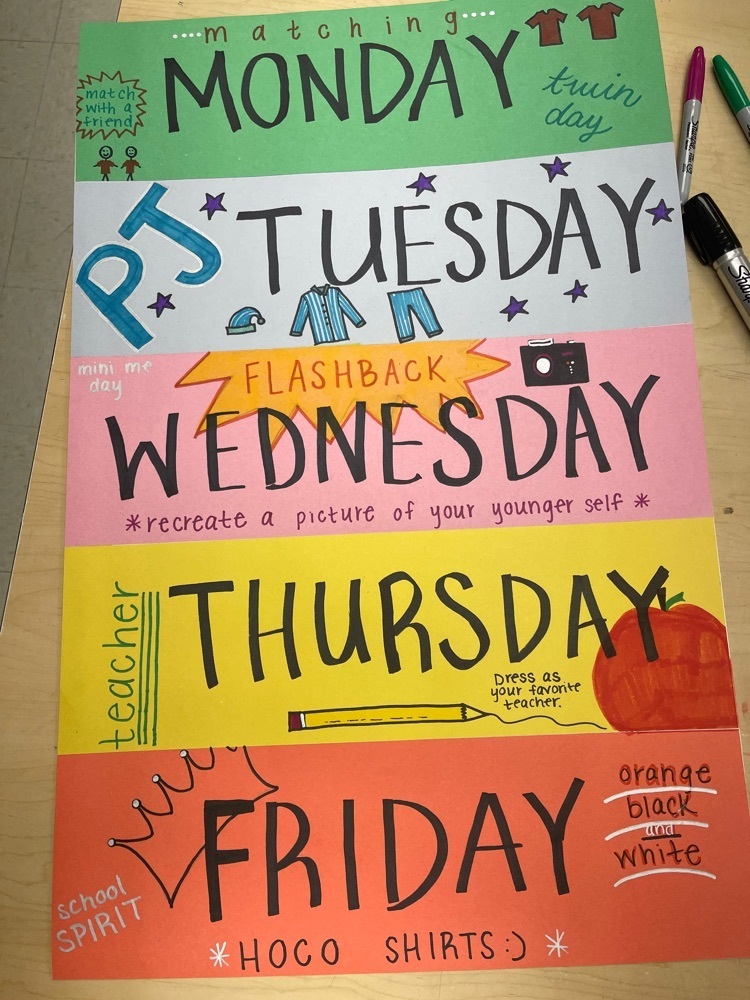 matching
MONDAY
match
with a
friend
twin
day
PJ
TUESDAY
mini me
day
FLASHBACK
WEDNESDAY
*recreate a picture of your younger self *
teacher
THURSDAY
Dress as
your favorite
teacher.
FRIDAY
orange
black
and
white
school
SPIRIT
*HOCO SHIRTS:) *
Sharpie